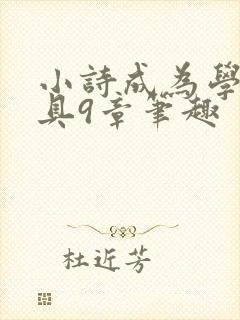 小詩成為學
具9章筆趣
杜近芳